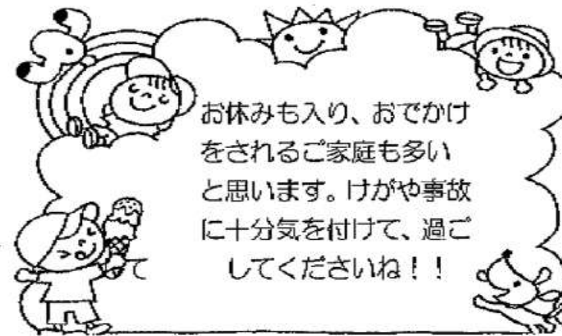 お休みも入り、おでかけ
をされるご家庭も多い
と思います。けがや事故
に十分気を付けて、過ご
て してくださいね！！